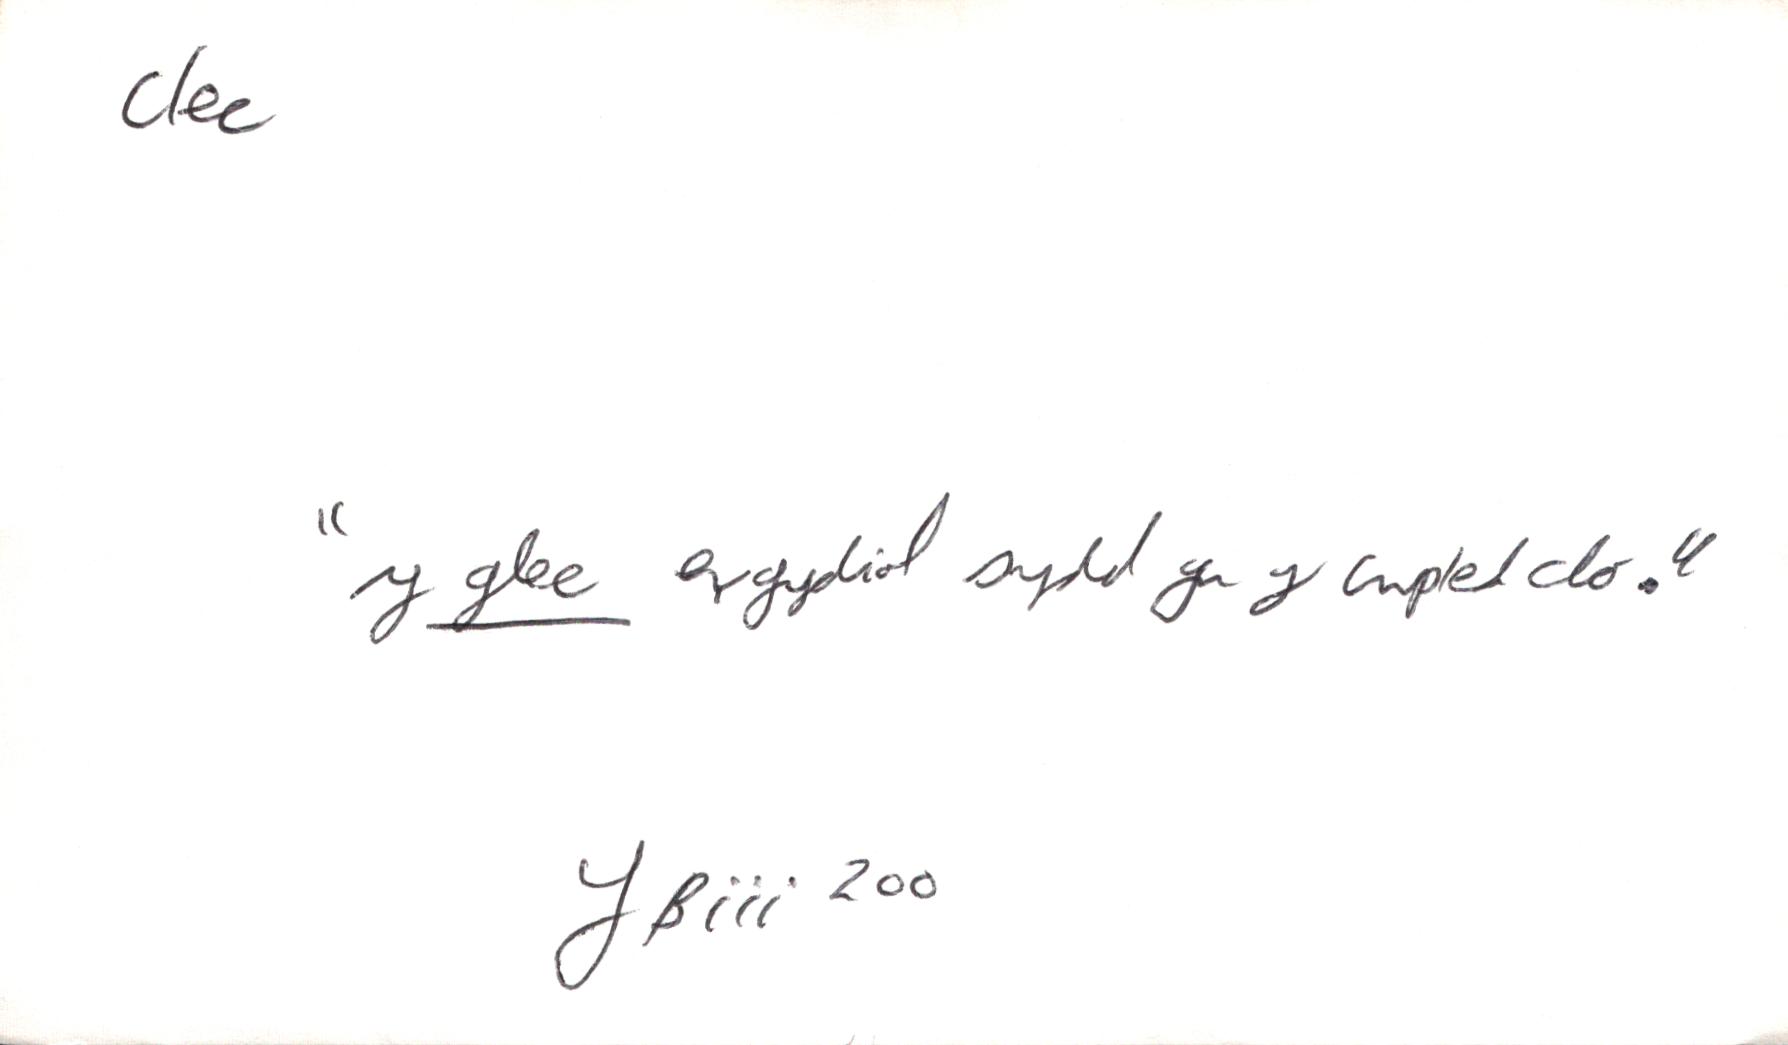 clec
"y glec ergydiol sydd yn y cwpled clo."
YB iii 200